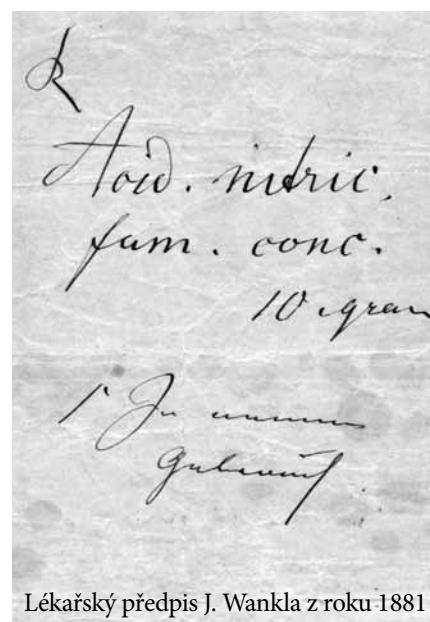 R
Acid. nitric.
fum. conc.
10 gram
Lékařský předpis J. Wankla z roku 1881